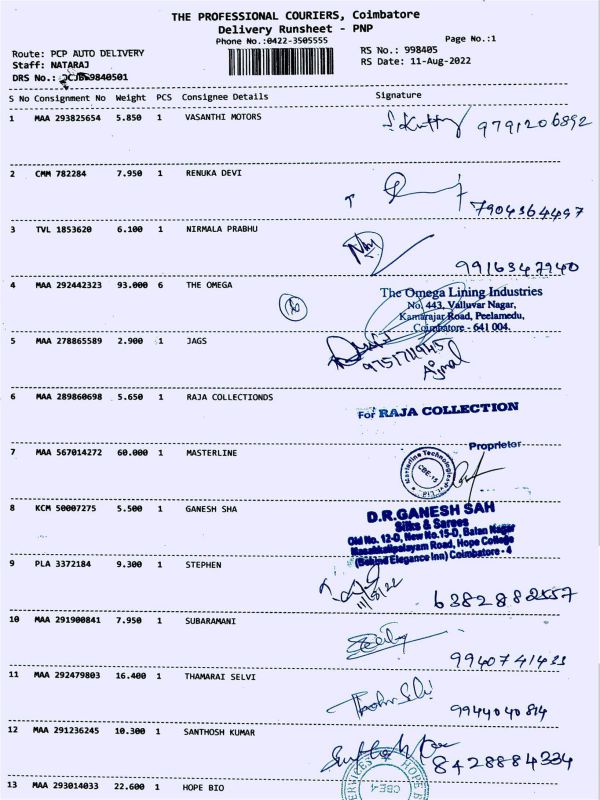 THE PROFESSIONAL COURIERS, Coimbatore
Delivery Runsheet - PNP
Phone No.:0422-3505555 Page No.:1
Route: PCP AUTO DELIVERY RS No.: 998405
Staff: NATARAJ RS Date: 11-Aug-2022
DRS No.:
S No Consignment No Weight PCS Consignee Details Signature
1 MAA 293825654 5.850 1 VASANTHI MOTORS
S.Kutty 9791206892
2 CMM 782284 7.950 1 RENUKA DEVI
7904364497
3 TVL 1853620 6.100 1 NIRMALA PRABHU
9916347940
4 MAA 292442323 93.000 6 THE OMEGA
The Omega Lining Industries
No. 443, Valluvar Nagar,
Kamarajar Road, Peelamedu,
Coimbatore - 641 004.
5 MAA 278865589 2.900 1 JAGS
Ajmal
6 MAA 289860698 5.650 1 RAJA COLLECTIONDS
For RAJA COLLECTION
Proprietor
7 MAA 567014272 60.000 1 MASTERLINE
Masterline Technologies
CBE-15
8 KCM 50007275 5.500 1 GANESH SHA
D.R.GANESH SAH
Silks & Sarees
Old No. 12-D, New No.15-D, Balan Nagar
Masakkalipalayam Road, Hope College
(Behind Elegance Inn) Coimbatore - 4
9 PLA 3372184 9.300 1 STEPHEN
11/8/22
10 MAA 291900841 7.950 1 SUBARAMANI
9940741433
11 MAA 292479803 16.400 1 THAMARAI SELVI
9944040814
12 MAA 291236245 10.300 1 SANTHOSH KUMAR
8428884334
13 MAA 293014033 22.600 1 HOPE BIO
SERVICES HOPE
CBE-4